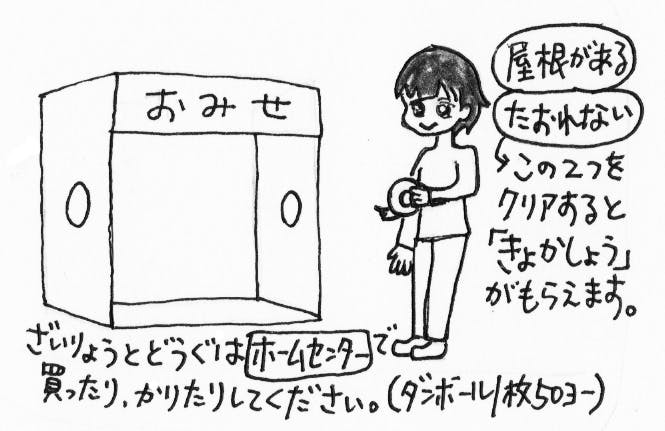 おみせ
屋根がある
たおれない
この2つを
クリアすると
「きょかしょう」
がもらえます。
ざいりょうとどうぐはホームセンターで
買ったり、かりたりしてください。(ダンボール1枚50ヨー)